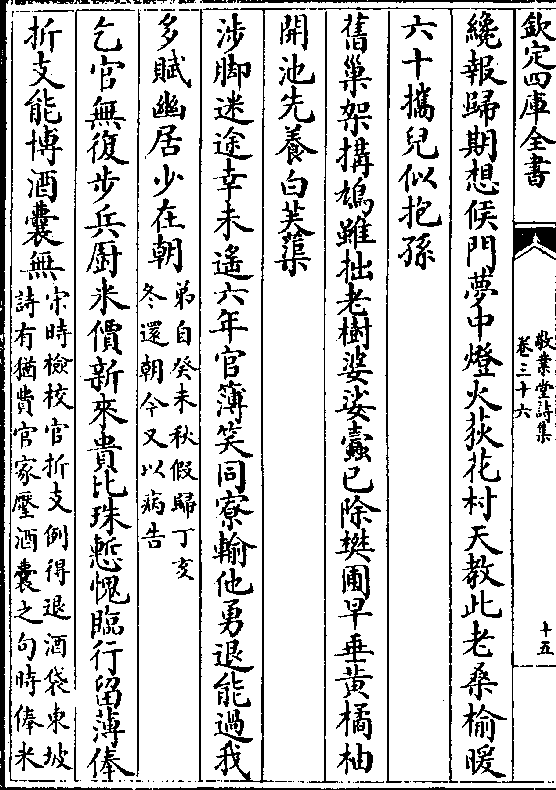 欽定四庫全書
敬業堂詩集
卷三十六
十五
纔報歸期想候門夢中燈火荻花村天教此老桑榆暖
六十攜兒似抱孫
舊巢架搆鳩雖拙老樹婆娑蠧已除樊圃早垂黃橘柚
開池先養白芙蕖
涉脚迷途幸未遙六年官簿笑同寮輸他勇退能過我
多賦幽居少在朝
弟自癸未秋假歸丁亥
冬還朝今又以病告
乞官無復步兵厨米價新來貴比珠慙愧臨行留薄俸
折支能博酒囊無
宋時檢校官折支例得退酒袋東坡
詩有猶費官家壓酒囊之句時俸米